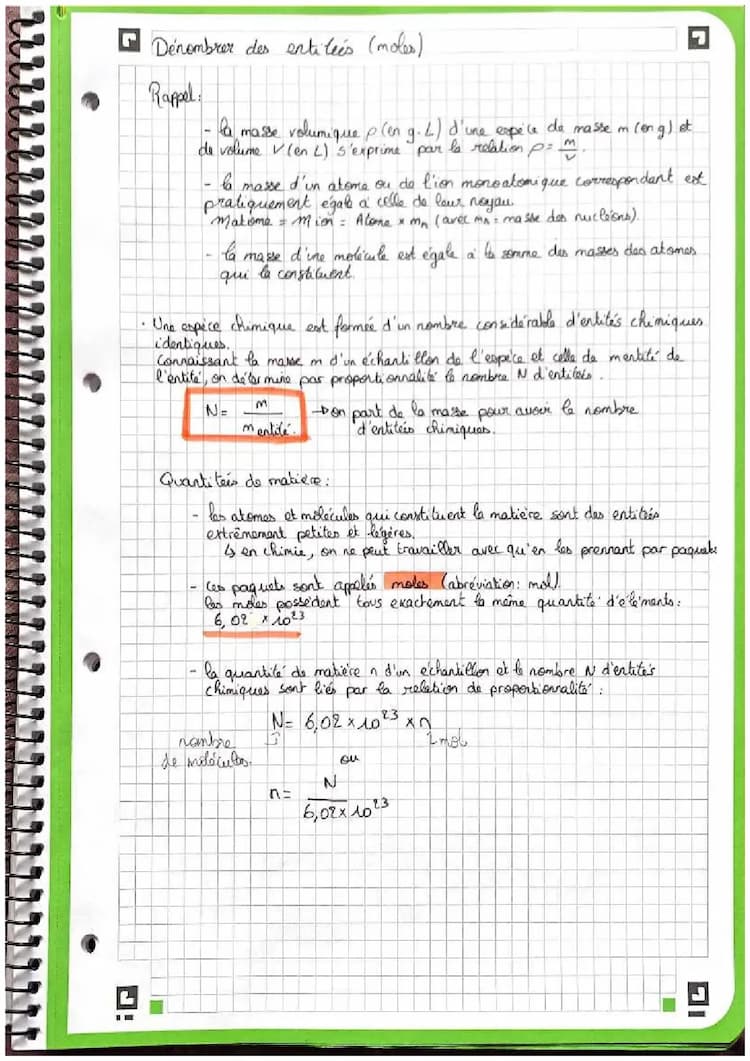 Dénombrer des entités (moles)
Rappel :
- la masse volumique ρ (en g.L) d'une espèce de masse m (en g) et
de volume V (en L) s'exprime par la relation ρ = m/V.
- la masse d'un atome ou de l'ion monoatomique correspondant est
pratiquement égale à celle de leur noyau.
Matome = M ion = Atome × mn (avec mn = masse des nucléons).
- la masse d'une molécule est égale à la somme des masses des atomes
qui la constituent.
· Une espèce chimique est formée d'un nombre considérable d'entités chimiques
identiques.
Connaissant la masse m d'un échantillon de l'espèce et celle de mentité de
l'entité, on détermine par proportionnalité le nombre N d'entités.
N = m / m entité. → on part de la masse pour avoir le nombre
d'entités chimiques.
Quantités de matière :
- les atomes et molécules qui constituent la matière sont des entités
extrêmement petites et légères.
↳ en chimie, on ne peut travailler avec qu'en les prennant par paquets
- Ces paquets sont appelés moles (abréviation : mol).
les moles possèdent tous exactement la même quantité d'éléments :
6,02 × 10²³
- la quantité de matière n d'un échantillon et le nombre N d'entités
chimiques sont liés par la relation de proportionnalité :
N = 6,02 × 10²³ × n
nombre
de molécules.
mol
ou
n = N / 6,02 × 10²³